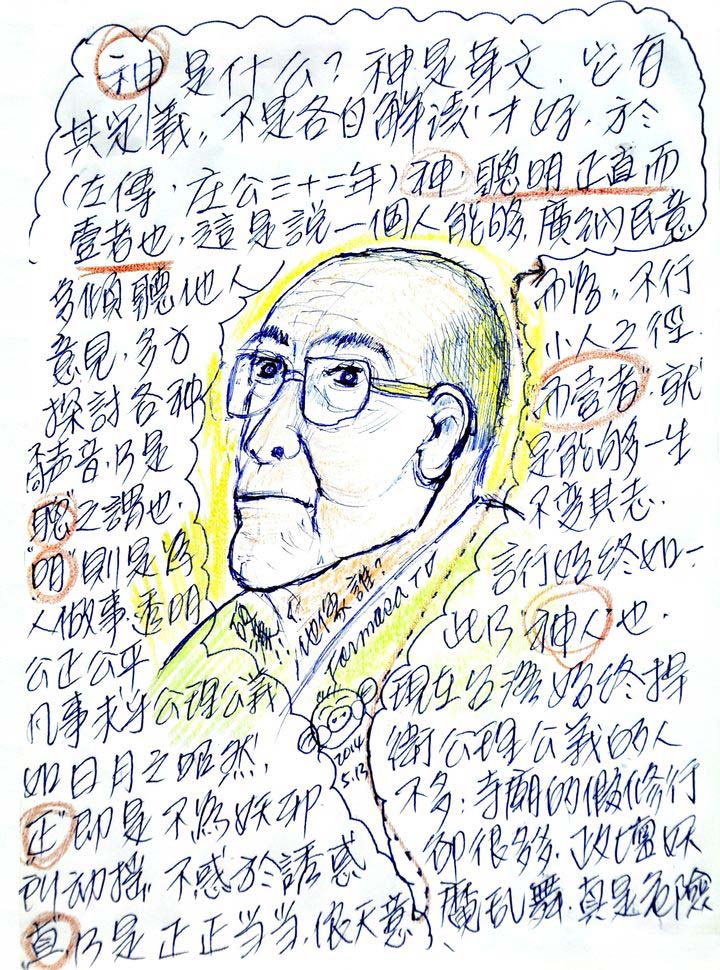 神是什么？神是華文．它有
其定義，不是各自解读才好，於
(左傳，庄公三十二年)神，聰明正直而
壹者也，這是説一個人能够，廣納民意
多傾聽他人
意見，多方
探討各种
声音，乃是
"聰"之謂也．
"明"則是為
人做事，透明
公正公平
凡事求乎公理公義
如日月之昭然，
"正"即是不為妖邪
所动摇"不惑於誘惑
直，乃是正正当当，依天意
而為，不行
小人之徑．
"而壹者"，就
是能够一生
不变其志．
言行始終如一
此乃"神人"也．
現在台湾始終捍
衛公理公義的人
不多；寺廟的假修行
卻很多，政壇妖
魔乱舞，真是危險
他像誰？
Formasa TV
2014
5.13